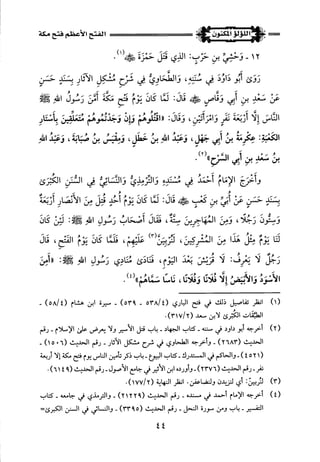 اللؤلؤ المكنون
الفتح الأعظم فتح مكة
١٢ - وَحْشِيُّ بن حَرْبٍ: الذِي قَتَلَ حَمْزَةَ ﷺ(١).
رَوَى أَبُو دَاوُدَ فِي سُنَنِهِ، وَالطَّحَاوِيُّ فِي شَرْحِ مُشْكِلِ الآثَارِ بِسَنَدٍ حَسَنٍ
عَنْ سَعْدِ بنِ أَبِي وَقَّاصٍ ﷺ قَالَ: لَمَّا كَانَ يَوْمُ فَتْحِ مَكَّةَ أَمَّنَ رَسُولُ اللهِ ﷺ
النَّاسَ إِلَّا أَرْبَعَةَ نَفَرٍ وَامْرَأَتَيْنِ، وَقَالَ: «اقْتُلُوهُمْ وَإِنْ وَجَدْتُمُوهُمْ مُتَعَلِّقِينَ بِأَسْتَارِ
الكَعْبَةِ: عِكْرِمَةُ بنُ أَبِي جَهْلٍ، وَعَبْدُ اللهِ بنُ خَطَلٍ، وَمِقْيَسُ بنُ صُبَابَةَ، وَعَبْدُ اللهِ
بنُ سَعْدِ بنِ أَبِي السَّرْحِ»(٢).
وَأَخْرَجَ الإِمَامُ أَحْمَدُ فِي مُسْنَدِهِ وَالتِّرْمِذِيُّ وَالنَّسَائِيُّ فِي السُّنَنِ الكُبْرَى
بِسَنَدٍ حَسَنٍ عَنْ أُبَيِّ بنِ كَعْبٍ ﷺ قَالَ: لَمَّا كَانَ يَوْمُ أُحُدٍ قُتِلَ مِنَ الأَنْصَارِ أَرْبَعَةٌ
وَسِتُّونَ رَجُلًا، وَمِنَ المُهَاجِرِينَ سِتَّةٌ، فَقَالَ أَصْحَابُ رَسُولِ اللهِ ﷺ: لَئِنْ كَانَ
لَنَا يَوْمٌ مِثْلُ هَذَا مِنَ المُشْرِكِينَ، لَنُرْبِيَنَّ(٣) عَلَيْهِمْ، فَلَمَّا كَانَ يَوْمُ الفَتْحِ، قَالَ
رَجُلٌ لَا يُعْرَفُ: لَا قُرَيْشَ بَعْدَ اليَوْمِ، فَنَادَى مُنَادِي رَسُولِ اللهِ ﷺ: «أَمِنَ
الأَسْوَدُ وَالأَبْيَضُ إِلَّا فُلَانًا وَفُلَانًا، نَاسًا سَمَّاهُمْ»(٤).
(١) انظر تفاصيل ذلك في فتح الباري (٥٣٨/٤ - ٥٣٩) - سيرة ابن هشام (٥٨/٤) -
الطبقات الكبرى لابن سعد (٣١٧/٢).
(٢) أخرجه أبو داود في سننه - كتاب الجهاد - باب قتل الأسير ولا يعرض على الإسلام - رقم
الحديث (٢٦٨٣) - وأخرجه الطحاوي في شرح مشكل الآثار - رقم الحديث (١٥٠٦) -
(٤٥٢١) - والحاكم في المستدرك - كتاب البيوع - باب ذكر تأمين الناس يوم فتح مكة إلا أربعة
نفر - رقم الحديث (٢٣٧٦) - وأورده ابن الأثير في جامع الأصول - رقم الحديث (٦١٤٩).
(٣) لَنُرْبِيَنَّ: أي لنزيدن ولنضاعفن. انظر النهاية (١٧٧/٢).
(٤) أخرجه الإمام أحمد في مسنده - رقم الحديث (٢١٢٢٩) - والترمذي في جامعه - كتاب
التفسير - باب ومن سورة النحل - رقم الحديث (٣٣٩٥) - والنسائي في السنن الكبرى=
٤٤